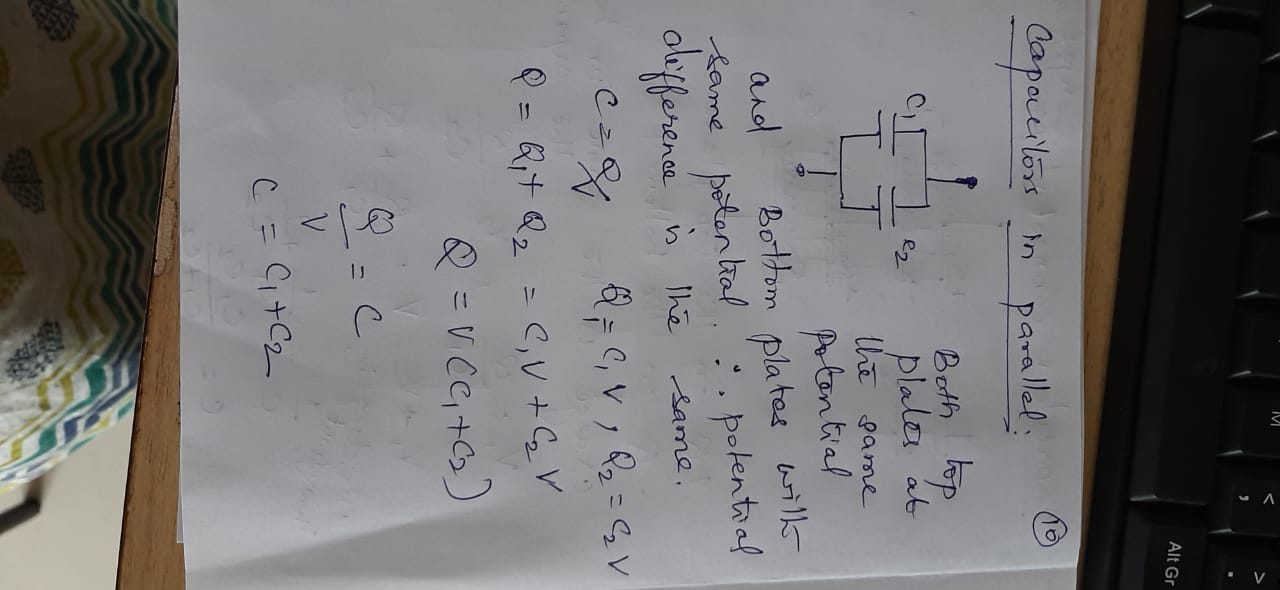 Capacitors in parallel:
10
C1
C2
Both top
plates at
the same
potential
and Bottom plates with
same potential. ∴ potential
difference is the same.
C = Q/V Q1 = C1 V, Q2 = C2 V
Q = Q1 + Q2 = C1 V + C2 V
Q = V (C1 + C2)
Q/V = C
C = C1 + C2
M
< ,
> .
Alt Gr